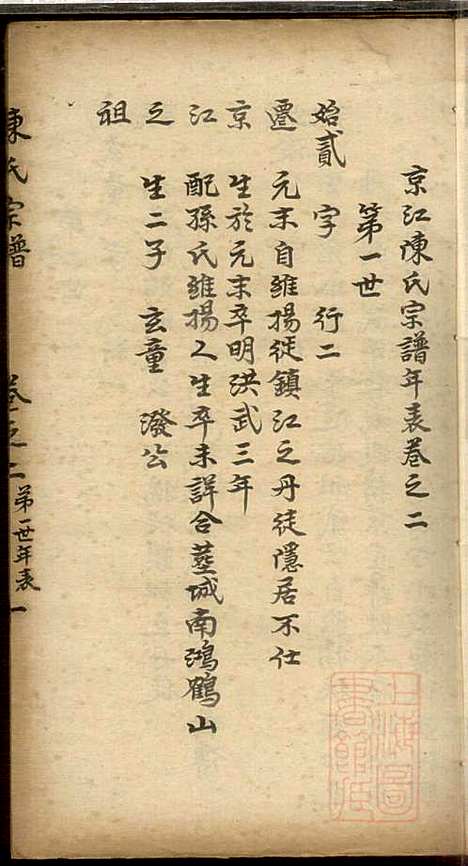 京江陳氏宗譜年表卷之二
第一世
始貳 字 行二
遷 元末自維揚徙鎮江之丹徒隱居不仕
京 生於元末卒明洪武三年
江 配孫氏維揚人生卒未詳合塟城南鴻鶴山
之 生二子 玄童 潑公
祖
陳氏宗譜 卷之二 第一世年表 一
上海圖書館藏